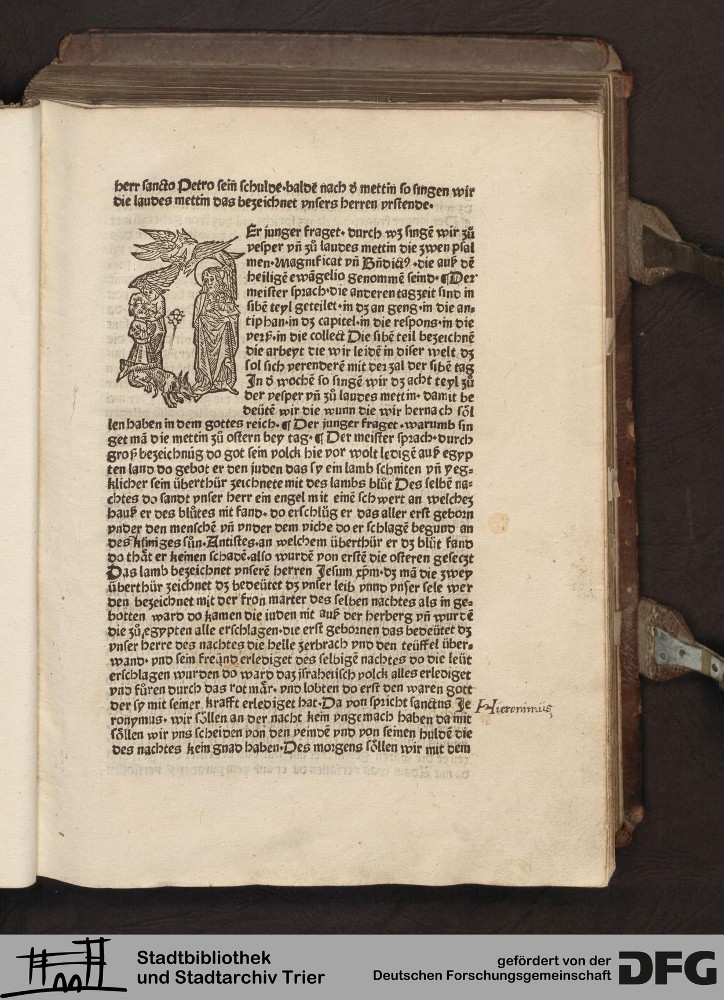 herr sancto Petro sein̄ schulde·baldē nach d̓ mettin so singen wir
die laudes mettin das bezeichnet vnsers herren vrstende·
Er junger fraget· durch wz singē wir zů
vesper vn̄ zů laudes mettin die zwen psal
men·Magnificat vn̄ Bn̄dictꝰ·die auß dē
heiligē ewāgelio genommē seind·¶Der
meister sprach·die anderen tagzeit sind in
sibē teyl geteilet·in dz an geng·in die an⸗
tiphan·in dz capitel·in die respons·in die
verß·in die collect Die sibē teil bezeichnē
die arbeyt die wir leidē in diser welt dz
sol sich verenderē mit der zal der sibē tag
In d̓ wochē so singē wir dz acht teyl zů
der vesper vn̄ zů laudes mettin·damit be
deütē wir die wunn die wir hernach söl
len haben in dem gottes reich·¶Der junger fraget·warumb sin
get mā die mettin zů ostern bey tag·¶Der meister sprach·durch
groß bezeichnūg do got sein volck hie vor wolt ledigē auß egyp
ten land do gebot er den juden das sy ein lamb schniten vn̄ yeg⸗
klicher sein überthür zeichnete mit des lambs blůt Des selbē na⸗
chtes do sandt vnser herr ein engel mit einē schwert an welchez
hauß er des blůtes nit fand·do erschlůg er das aller erst geborn
vnder den menschē vn̄ vnder dem viche do er schlagē begund an
des küniges sůn·Antistes·an welchem überthür er dz blůt fand
do thät er keinen schadē·also wurdē von erstē die osteren geseczt
Das lamb bezeichnet vnserē herren Jesum xp̄m·dz mā die zwey
überthür zeichnet dz bedeütet dz vnser leib vnnd vnser sele wer
den bezeichnet mit der fron marter des selben nachtes als in ge⸗
botten ward do kamen die juden nit auß der herberg vn̄ wurdē
die zů egypten alle erschlagen·die erst gebornen das bedeütet dz
vnser herre des nachtes die helle zerbrach vnd den teüffel über⸗
wand·vnd sein freünd erlediget des selbigē nachtes do die leüt
erschlagen wurden do ward daz jsrahelisch volck alles erlediget
vnd fůren durch das rot mär·vnd lobten do erst den waren gott
der sy mit seiner krafft erlediget hat·Da von spricht sanctus Je
ronymus·wir söllen an der nacht kein vngemach haben da mit
söllen wir vns scheiden von den veindē vnd von seinen huldē die
des nachtes kein gnad haben·Des morgens söllen wir mit dem
Hieronimus
Stadtbibliothek
und Stadtarchiv Trier
gefördert von der
Deutschen Forschungsgemeinschaft
DFG